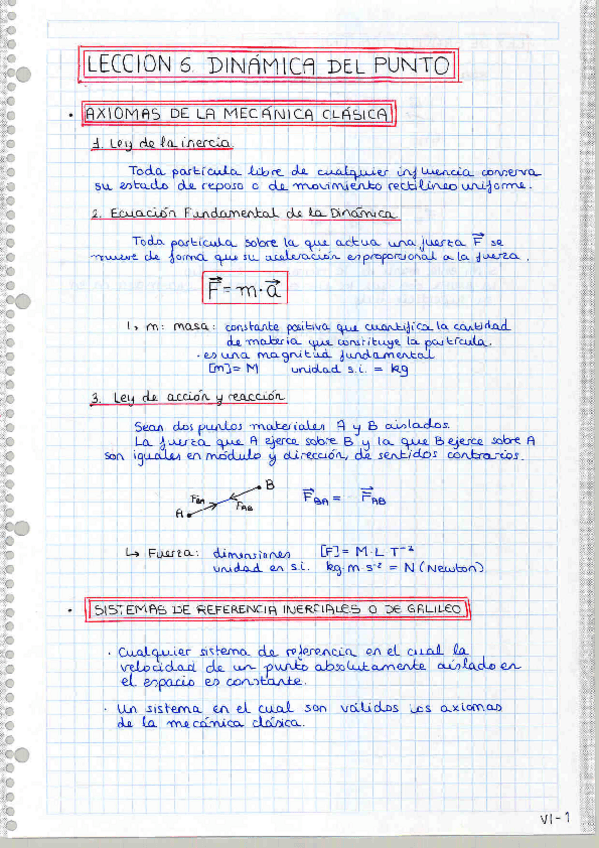 LECCION 6 DINÁMICA DEL PUNTO
· AXIOMAS DE LA MECÁNICA CLÁSICA
1. Ley de la inercia.
Toda partícula libre de cualquier influencia conserva
su estado de reposo o de movimiento rectilíneo uniforme.
2. Ecuación Fundamental de la Dinámica
Toda partícula sobre la que actua una fuerza F⃗ se
mueve de forma que su aceleración es proporcional a la fuerza.
F⃗ = m·a⃗
↳ m: masa: constante positiva que cuantifica la cantidad
de materia que constituye la partícula.
· es una magnitud fundamental
[m] = M unidad s.i. = kg
3. Ley de acción y reacción
Sean dos puntos materiales A y B aislados.
La fuerza que A ejerce sobre B y la que B ejerce sobre A
son iguales en módulo y dirección, de sentidos contrarios.
B
F_BA F_AB F⃗_BA = - F⃗_AB
A
↳ Fuerza: dimensiones [F] = M·L T⁻²
unidad en s.i. kg·m·s⁻² = N (Newton)
· SISTEMAS DE REFERENCIA INERCIALES O DE GALILEO
· Cualquier sistema de referencia en el cual la
velocidad de un punto absolutamente aislado en
el espacio es constante.
· Un sistema en el cual son válidos los axiomas
de la mecánica clásica.
VI-1